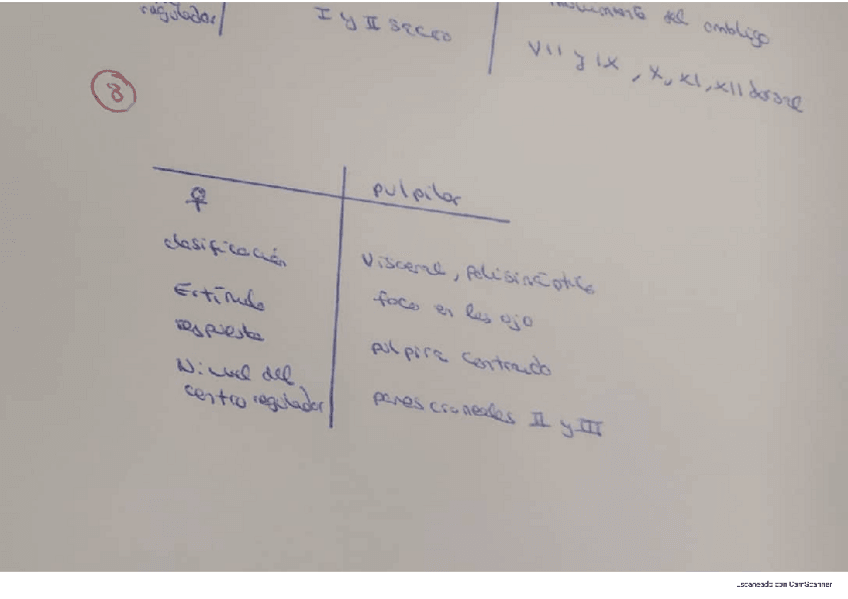 regulador
I y II sacro
movimiento del ombligo
VII y IX, X, XI, XII dorsal
8
♀
pulpilar
clasificación
Visceral, polisináptico
Estímulo
foco en los ojo
respuesta
pulpira contraido
Nivel del
centro regulador
pares craneales II y III
Escaneado con CamScanner